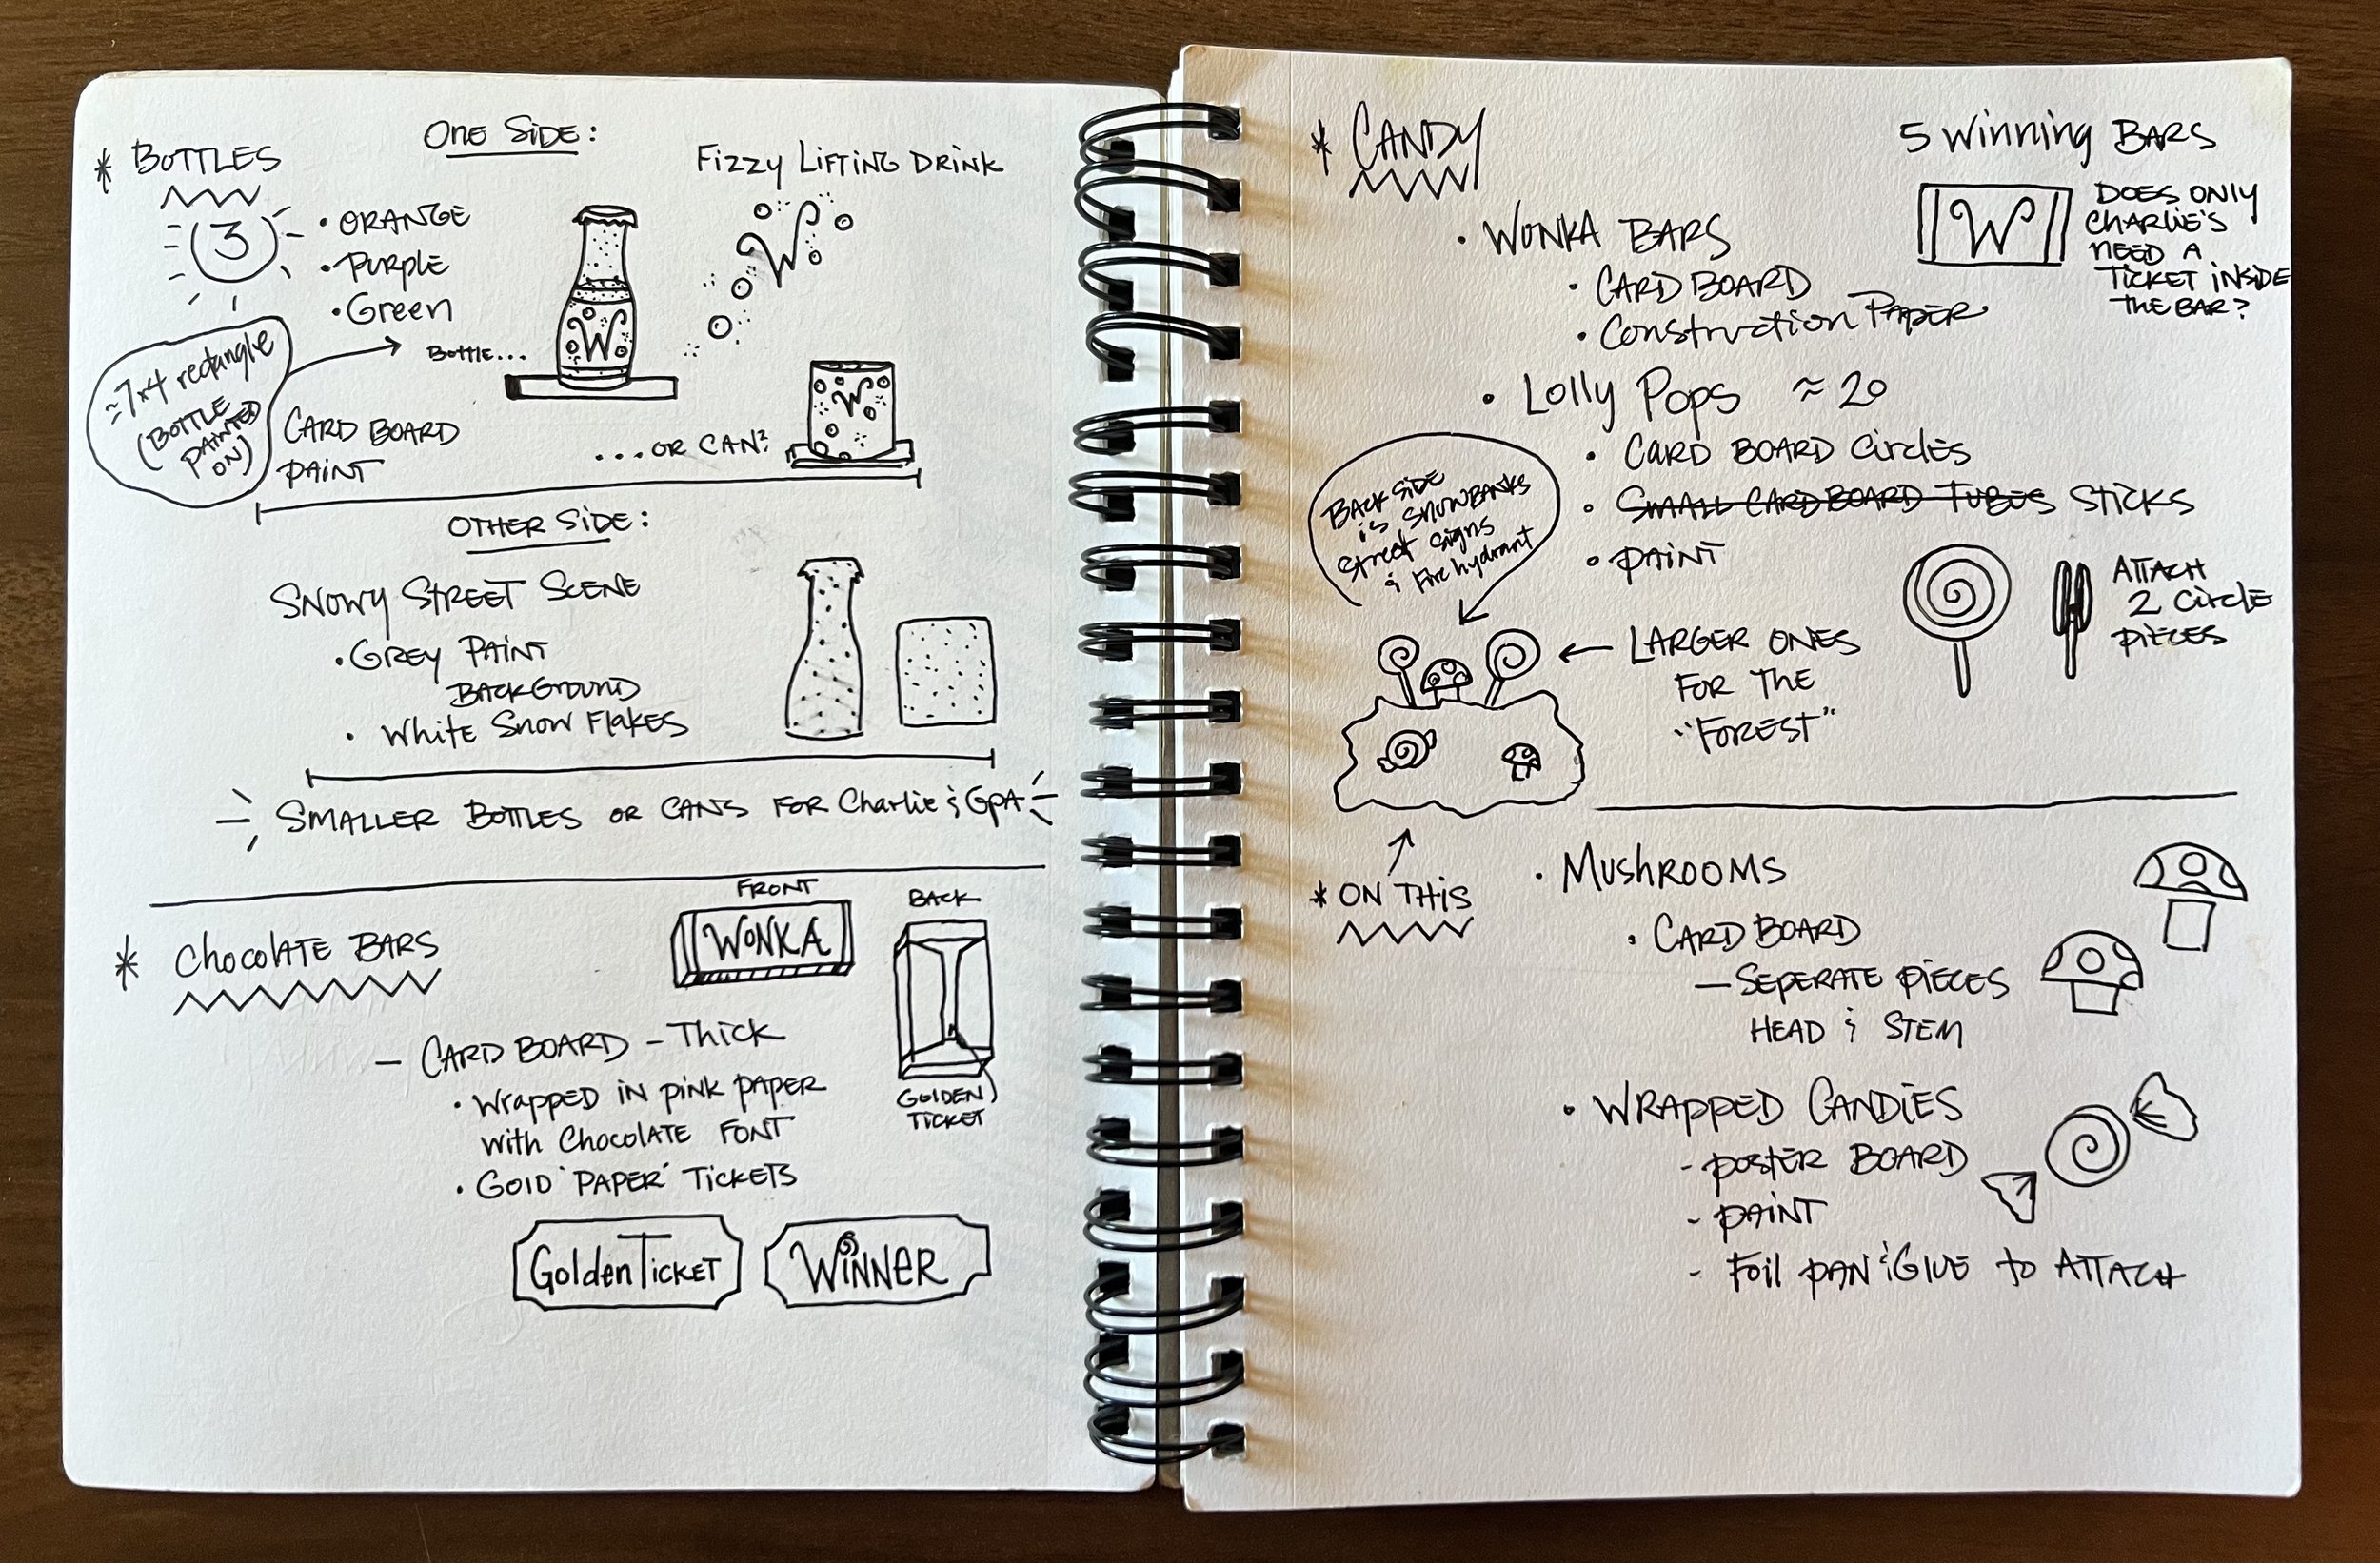 * BOTTLES
3
• ORANGE
• Purple
• Green
≈7x4 rectangle
(BOTTLE
PAINTED
ON)
CARD BOARD
PAINT
ONE SIDE:
FIZZY LIFTING DRINK
W
BOTTLE...
W
...OR CAN?
W
OTHER SIDE:
SNOWY STREET SCENE
• GREY PAINT
BACKGROUND
• WHITE SNOW FLAKES
SMALLER BOTTLES OR CANS FOR Charlie & GPA
* CHOCOLATE BARS
FRONT
WONKA
BACK
GOLDEN
TICKET
— CARD BOARD – THICK
• Wrapped in pink paper
with Chocolate FONT
• GOLD 'PAPER' TICKETS
Golden Ticket
WINNER
* CANDY
5 Winning BARS
W
DOES ONLY
CHARLIE'S
NEED A
TICKET INSIDE
THE BAR?
• WONKA BARS
• CARD BOARD
• Construction PAPER
• Lolly Pops ≈ 20
• CARD BOARD Circles
• SMALL CARD BOARD TUBES STICKS
• PAINT
BACK SIDE
is SNOWBANKS
Street Signs
& Fire hydrant
ATTACH
2 Circle
PIECES
← LARGER ONES
FOR THE
"FOREST"
* ON THIS
• MUSHROOMS
• CARD BOARD
— SEPERATE PIECES
HEAD & STEM
• WRAPPED CANDIES
- POSTER BOARD
- PAINT
- Foil PAN & GLUE to ATTACH